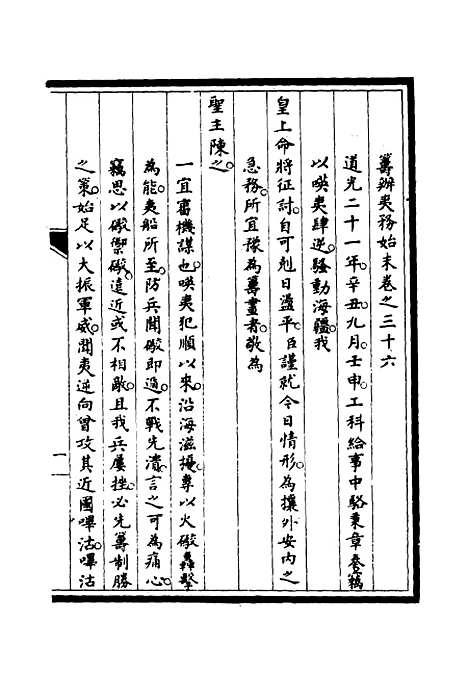 籌辦夷務始末卷之三十六
道光二十一年辛丑九月壬申工科給事中駱秉章奏竊
以㗸夷肆逆騷動海疆我
皇上命將征討自可剋日盪平臣謹就今日情形為攘外安内之
急務所宜豫為籌畫者敬為
聖主陳之
一宜審機謀也㗸夷犯順以來沿海滋擾專以火礮轟擊
為能夷船所至防兵聞礮即過不戰先潰言之可為痛心
竊思以礮禦礮遠近或不相敵且我兵屢挫必先籌制勝
之策始足以大振軍威聞夷逆向曾攻其近國嗶沽嗶沽
一